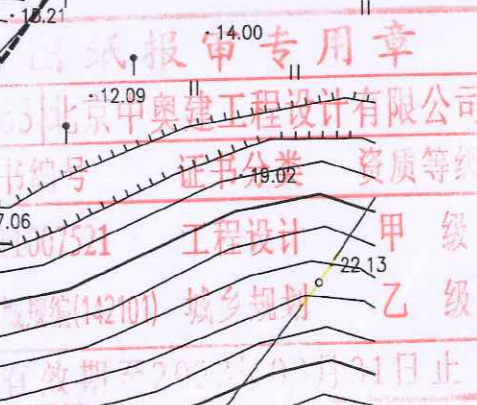 15.21
·14.00
纸报审专用章
·12.09
63|北京中奥建工程设计有限公司
书编号 证书分类 资质等级
·19.02
7.06
工程设计 甲 级
22.13
(142101) 城乡规划 乙 级
有效期至 31日止